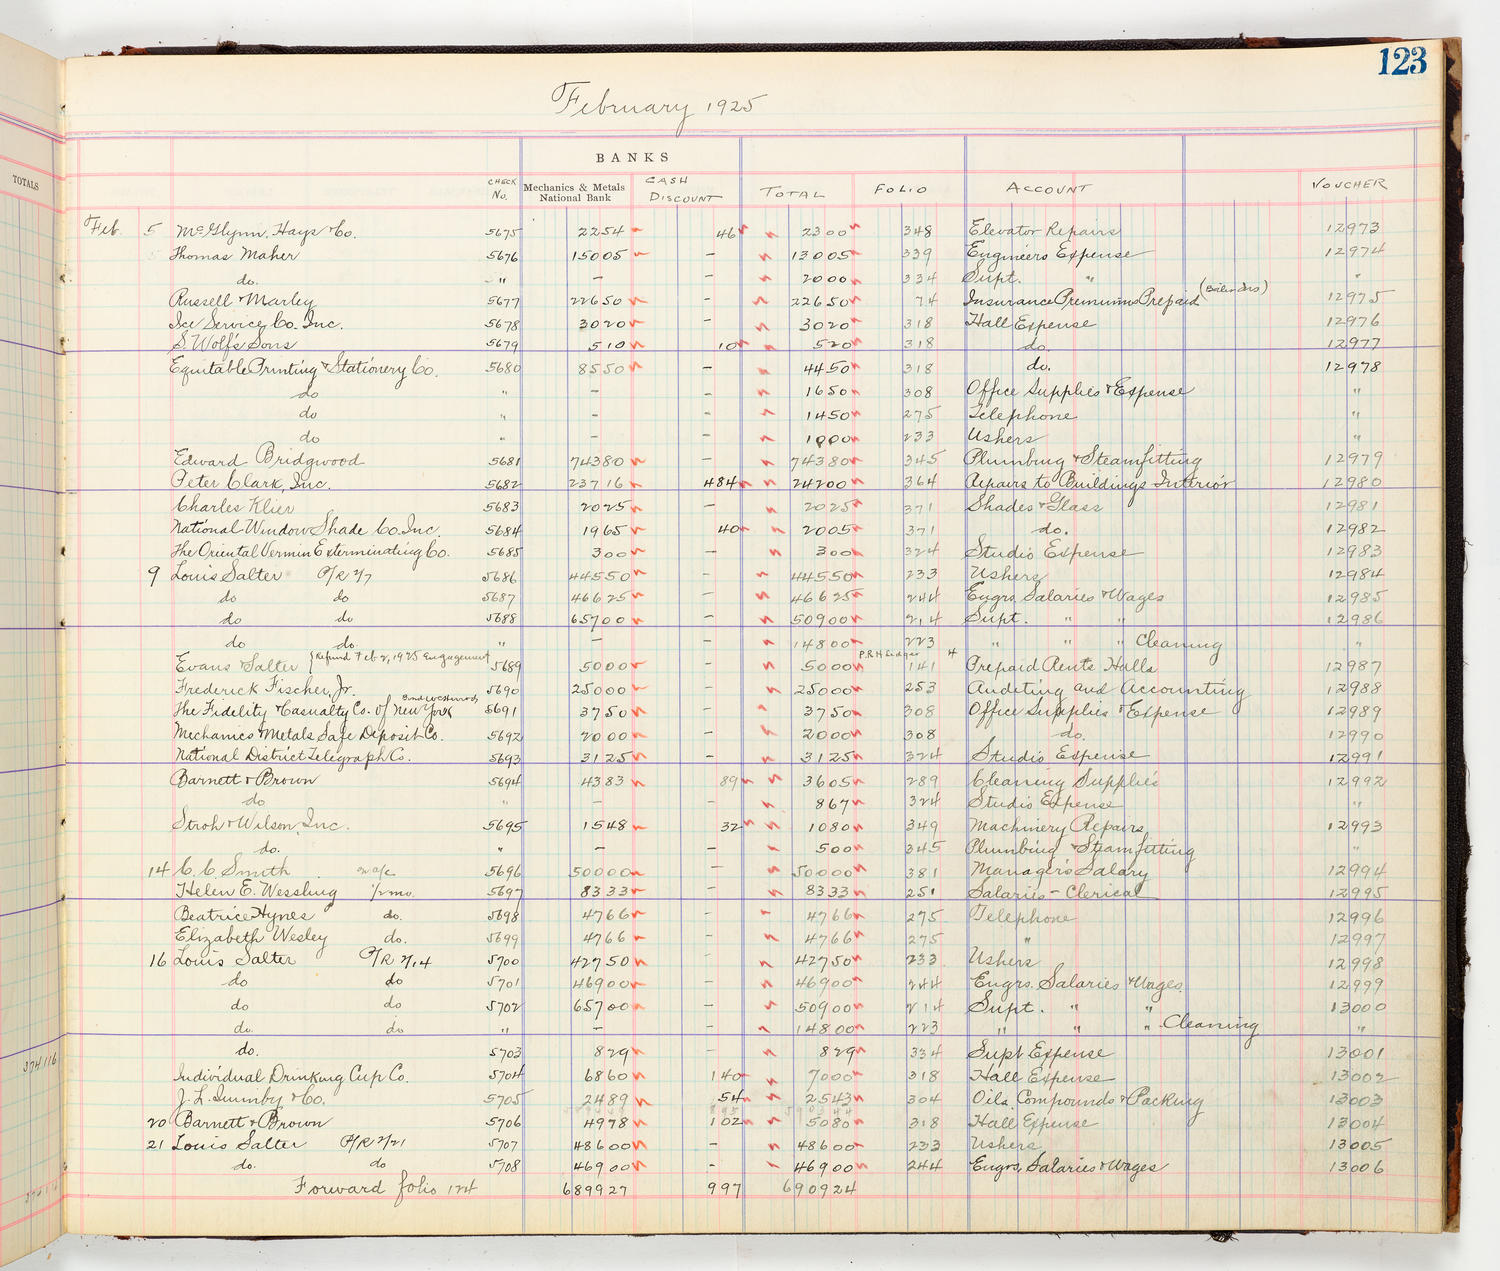 TOTALS
374116
123
February 1925
BANKS
CHECK No. Mechanics & Metals National Bank CASH DISCOUNT TOTAL FOLIO ACCOUNT VOUCHER
Feb. 5 McGlynn, Hays & Co. 5675 2254 46 2300 348 Elevator Repairs 12973
Thomas Maher 5676 15005 – 13005 339 Engineers Expense 12974
do. " – 2000 334 Supt. " "
Russell & Marley 5677 22650 – 22650 74 Insurance Premiums Prepaid (Boiler Ins) 12975
Ice Service Co. Inc. 5678 3020 – 3020 318 Hall Expense 12976
S. Wolf's Sons 5679 510 10 520 318 do. 12977
Equitable Printing & Stationery Co. 5680 8550 – 4450 318 do. 12978
do " – – 1650 308 Office Supplies & Expense "
do " – – 1450 275 Telephone "
do " – – 1000 233 Ushers "
Edward Bridgwood 5681 74380 – 74380 345 Plumbing & Steamfitting 12979
Peter Clark, Inc. 5682 23716 484 24200 364 Repairs to Buildings Interior 12980
Charles Klier 5683 2025 – 2025 371 Shades & Glass 12981
National Window Shade Co. Inc. 5684 1965 40 2005 371 do. 12982
The Oriental Vermin Exterminating Co. 5685 300 – 300 324 Studio Expense 12983
9 Louis Salter P/R 2/7 5686 44550 – 44550 233 Ushers 12984
do do 5687 46625 – 46625 244 Engrs. Salaries & Wages 12985
do do 5688 65700 – 50900 214 Supt. " " 12986
do do. " – – 14800 223 " " " Cleaning "
Evans & Salter {Refund Feb 2, 1925 Engagement 5689 5000 – 5000 P.R.H. Ledger 141 4 Prepaid Rents Halls 12987
Frederick Fischer, Jr. 5690 25000 – 25000 253 Auditing and Accounting 12988
The Fidelity & Casualty Co. of New York 5691 3750 – 3750 308 Office Supplies & Expense 12989
Mechanics & Metals Safe Deposit Co. 5692 2000 – 2000 308 do. 12990
National District Telegraph Co. 5693 3125 – 3125 324 Studio Expense 12991
Barnett & Brown 5694 4383 89 3605 289 Cleaning Supplies 12992
do " – – 867 324 Studio Expense "
Stroh & Wilson, Inc. 5695 1548 32 1080 349 Machinery Repairs 12993
do. " – – 500 345 Plumbing & Steamfitting "
14 C. C. Smith on a/c 5696 50000 – 50000 381 Manager's Salary 12994
Helen E. Wessling ½ mo. 5697 8333 – 8333 251 Salaries – Clerical 12995
Beatrice Hynes do. 5698 4766 – 4766 275 Telephone 12996
Elizabeth Wesley do. 5699 4766 – 4766 275 " 12997
16 Louis Salter P/R 2/14 5700 42750 – 42750 233 Ushers 12998
do do 5701 46900 – 46900 244 Engrs. Salaries & Wages 12999
do do 5702 65700 – 50900 214 Supt. " " 13000
do. do " – – 14800 223 " " " Cleaning "
do. 5703 829 – 829 334 Supt Expense 13001
Individual Drinking Cup Co. 5704 6860 140 7000 318 Hall Expense 13002
J. L. Quimby & Co. 5705 2489 54 2543 304 Oils, Compounds & Packing 13003
20 Barnett & Brown 5706 4978 102 5080 318 Hall Expense 13004
21 Louis Salter P/R 2/21 5707 48600 – 48600 233 Ushers 13005
do. do 5708 46900 – 46900 244 Engrs. Salaries & Wages 13006
Forward folio 124 689927 997 690924